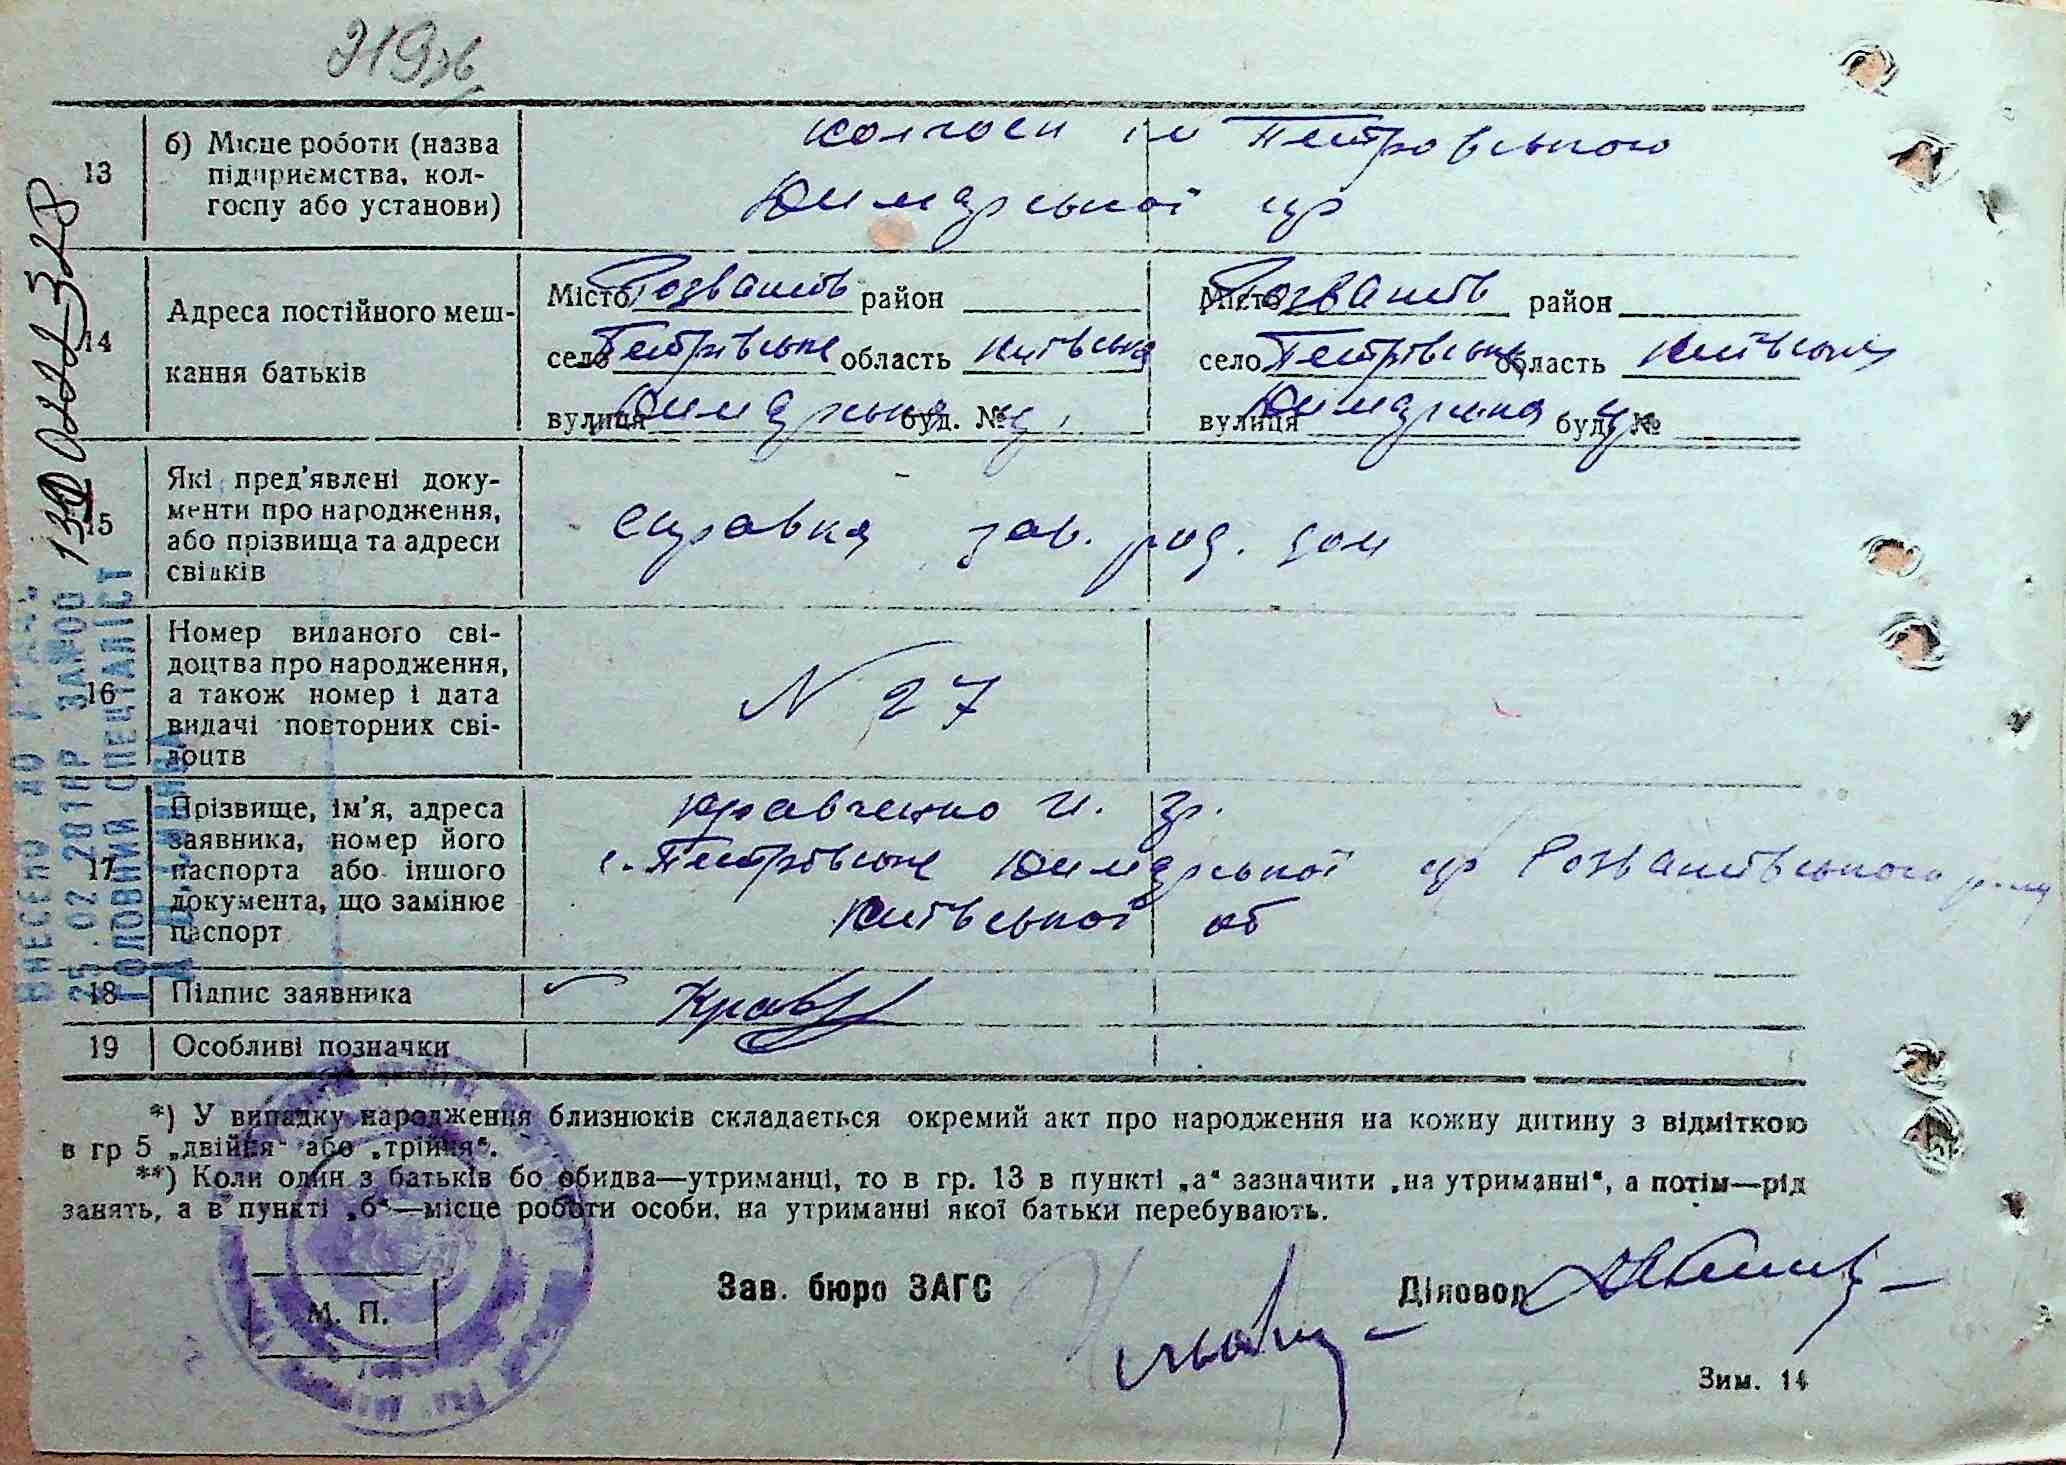 13
б) Місце роботи (назва
підприємства, кол-
госпу або установи)
колгосп ім Петровського
Димарської ср
14
Адреса постійного меш-
кання батьків
Місто Розважів район
село Петрівське область Київська
вулиця Димарська буд. №
Місто Розважів район
село Петрівське область Київська
вулиця Димарська буд. №
15
Які пред'явлені доку-
менти про народження,
або прізвища та адреси
свідків
справка зав. род. дом
16
Номер виданого сві-
доцтва про народження,
а також номер і дата
видачі повторних сві-
доцтв
N 27
17
Прізвище, ім'я, адреса
заявника, номер його
паспорта або іншого
документа, що замінює
паспорт
Кравченко И. Гр.
с. Петрівське Димарської ср Розважівського р-ну
Київської об
18
Підпис заявника
Крав
19
Особливі позначки
*) У випадку народження близнюків складається окремий акт про народження на кожну дитину з відміткою
в гр 5 „двійня“ або „трійня“.
**) Коли один з батьків бо обидва—утриманці, то в гр. 13 в пункті „а“ зазначити „на утриманні“, а потім—рід
занять, а в пункті „б“—місце роботи особи, на утриманні якої батьки перебувають.
М. П.
Зав. бюро ЗАГС
Діловод
Зим. 14
ВНЕСЕНО ДО
25.02.201 ІР ЗА №00
ГОЛОВНИЙ СПЕЦІАЛІСТ